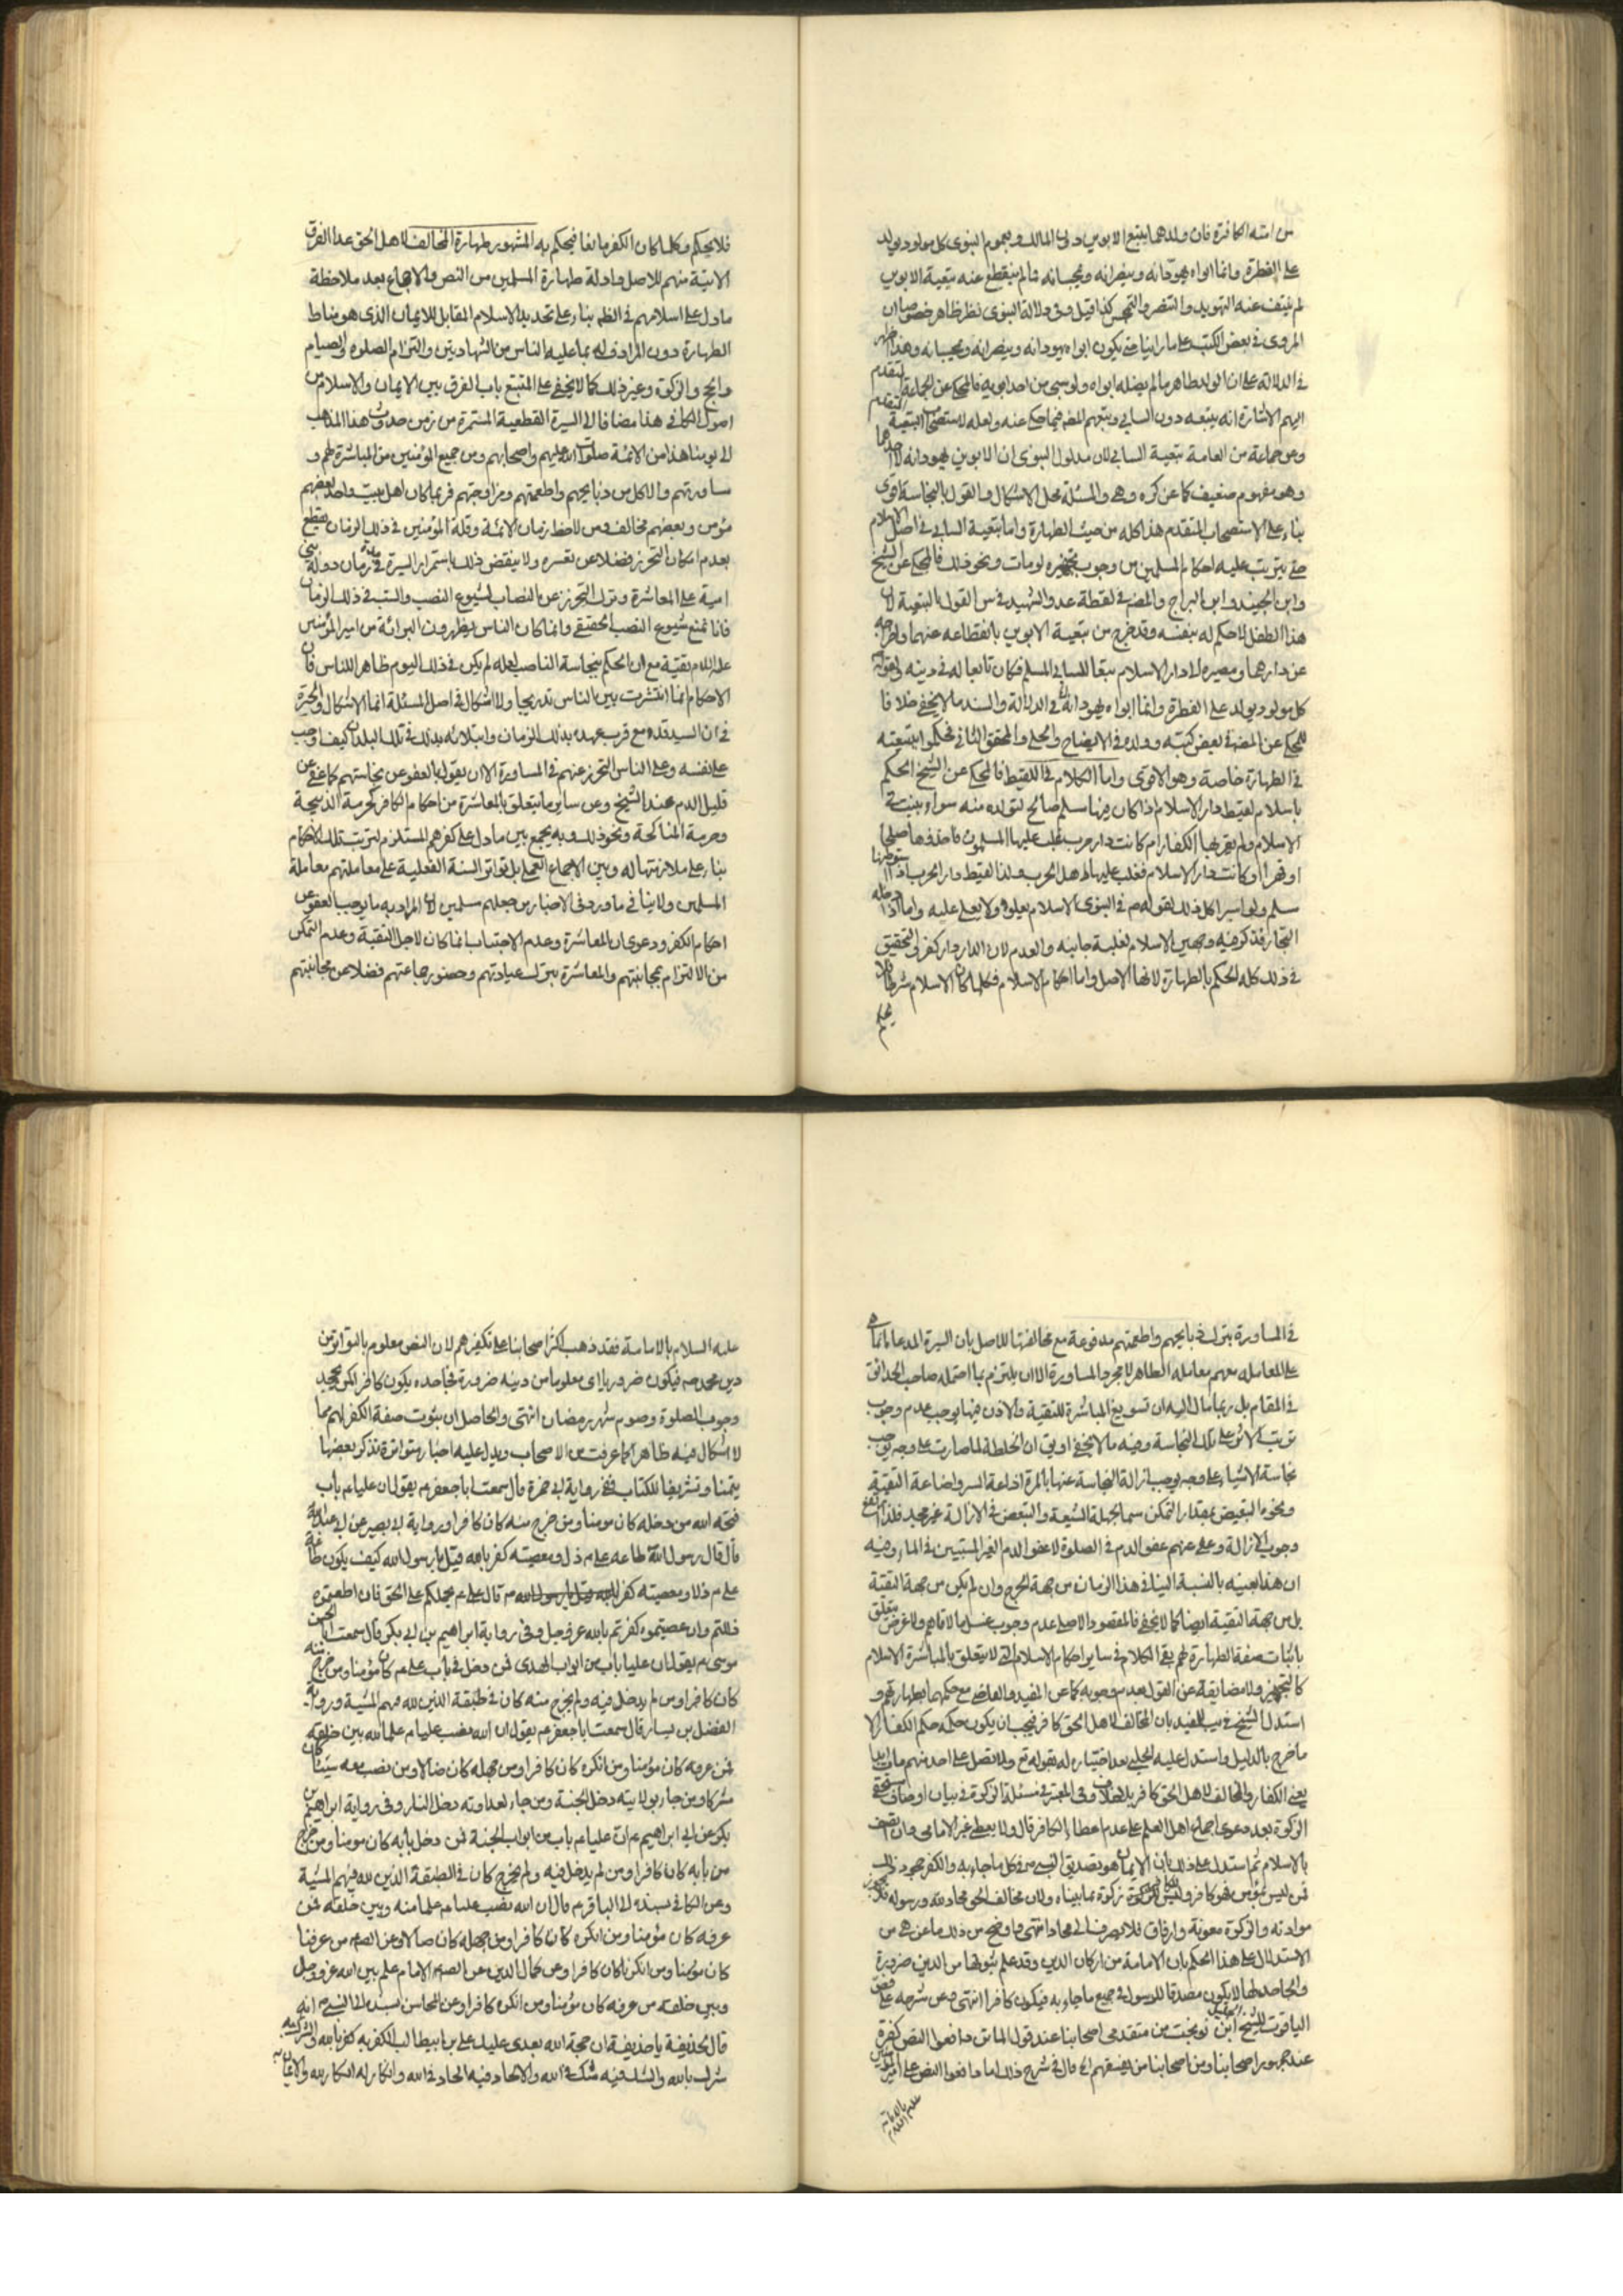 من امته الكافرة فان ولدهما يتبع الابوين دون المالك وبعموم النبوى كل مولود يولد
على الفطرة وانما ابواه يهودانه وينصرانه ويمجسانه فما لم ينقطع عنه تبعية الابوين
لم ينتف عنه التهويد والتنصر والتمجس كذا قيل وفى دلالة النبوى نظر ظاهر خصوصا ان
المروى فى بعض الكتب على ما راينا حتى يكون ابواه يهودانه وينصرانه ويمجسانه وهذا اظهر
فى الدلالة على ان الولد طاهر ما لم يضله ابواه ولو سبى مع احد ابويه فالمحكى عن الجماعة المتقدم
اليهم الاشارة انه يتبعه دون السابى وتبعهم المصنف فيما حكى عنه ولعله لاستصحاب التبعية المتقدم
وعن جماعة من العامة تبعية السابى لان مدلول النبوى ان الابوين يهودانه لا احدهما
وهو مفهوم ضعيف كما عن كره وهى والمسئلة محل الاشكال والقول بالنجاسة اقوى
بناء على الاستصحاب المتقدم هذا كله من حيث الطهارة واما تبعية السابى فى اصل الاسلام
حتى يترتب عليه احكام المسلمين من وجوب تجهيزه لو مات ونحو ذلك فالمحكى عن الشيخ
وابن الجنيد وابن البراج والمصنف فى لقطة عد والشهيد فى س القول بالتبعية لان
هذا الطفل لا حكم له بنفسه وقد خرج من تبعية الابوين بانقطاعه عنهما واخراجه
عن دارهما ومصيره الى دار الاسلام تبعا للسابى المسلم فكان تابعا له فى دينه ولقوله
كل مولود يولد على الفطرة وانما ابواه يهودانه فى الدلالة والسند ما لا يخفى خلافا
للمحكى عن المصنف فى بعض كتبه وولده فى الايضاح والحلى والمحقق الثانى فحكموا بتبعيته
فى الطهارة خاصة وهو الاقوى واما الكلام فى اللقيط فالمحكى عن الشيخ الحكم
باسلام لقيط دار الاسلام اذا كان فيها مسلم صالح لتولده منه سواء بنيت فى
الاسلام ولم يقربها الكفار ام كانت دار حرب فغلب عليها المسلمون فاخذوها صلحا
او قهرا او كانت دار الاسلام فغلب عليها اهل الحرب وكذا لقيط دار الحرب اذا استوطنها
مسلم ولو اسيرا كل ذلك لقوله ص فى النبوى الاسلام يعلو ولا يعلى عليه واما اذا دخله
التجار فذكر فيه وجهين الاسلام لغلبة جانبه والعدم لان الدار دار كفر فى التحقيق
فى ذلك كله الحكم بالطهارة لانها الاصل واما احكام الاسلام فكلما كان الاسلام شرطا فلا
يحكم
فلا يحكم وكلما كان الكفر مانعا فيحكم به المشهور طهارة المخالف لاهل الحق عدا الفرق
الاتية منهم للاصل وادلة طهارة المسلمين من النص والاجماع بعد ملاحظة
ما دل على اسلامهم فى الظهر بناء على تحديد الاسلام المقابل للايمان الذى هو مناط
الطهارة دون المرادف له بما عليه الناس من الشهادتين والتزام الصلوة والصيام
والحج والزكوة وغير ذلك كما لا يخفى على المتتبع باب الفرق بين الايمان والاسلام من
اصول الكافى هذا مضافا الى السيرة القطعية المستمرة من زمن حدوث هذا المذاهب
الى يومنا هذا من الائمة صلوات الله عليهم واصحابهم ومن جميع المؤمنين من المباشرة لهم و
مساورتهم والاكل من ذبايحهم واطعمتهم ومزاوجتهم فربما كان اهل بيت واحد بعضهم
مؤمن وبعضهم مخالف ومن لاحظ زمان الائمة وقلة المؤمنين فى ذلك الزمان يقطع
بعدم امكان التحرز فضلا عن تعسره ولا ينتقض ذلك باستمرار السيرة فى مدة زمان دولة بنى
امية على المعاشرة وترك التحرز عن النصاب لشيوع النصب والسب فى ذلك الزمان
فانا نمنع شيوع النصب الحقيقى وانما كان الناس يظهرون البرائة من امير المؤمنين
عليه السلام تقية مع ان الحكم بنجاسة الناصب لعله لم يكن فى ذلك اليوم ظاهرا للناس فان
الاحكام انما انتشرت بين الناس تدريجا ولا اشكال فى اصل المسئلة انما الاشكال والحيرة
فى ان السيد قده مع قرب عهده بذلك الزمان وابتلائه بذلك فى تلك البلدان كيف اوجب
على نفسه وعلى الناس التحرز عنهم فى المساورة الا ان يقول بالعفو عن نجاستهم كما عفى عن
قليل الدم عند الشيخ وعن ساير ما يتعلق بالمعاشرة من احكام الكافر كحرمة الذبيحة
وحرمة المناكحة ونحو ذلك وبه يجمع بين ما دل على كفرهم المستلزم لترتب تلك الاحكام
بناء على ملازمتها له وبين الاجماع العملى بل تواتر السنة الفعلية على معاملتهم معاملة
المسلمين ولا ينافى ما ورد فى الاخبار من جعلهم مسلمين لان المراد به ما يوجب العفو عن
احكام الكفر ودعوى ان المعاشرة وعدم الاجتناب انما كان لاجل التقية وعدم التمكن
من الالتزام بمجانبتهم والمعاشرة بترك عيادتهم وحضور جماعتهم فضلا عن مجانبتهم
فى المساورة بترك ذبايحهم واطعمتهم مدفوعة مع مخالفتها للاصل بان السيرة المدعاة انما هى
على المعامله معهم معامله الطاهر لا مجرد المساورة الا ان يلتزم بما احتمله صاحب الحدائق
فى المقام بل ربما مال اليه ان تسويغ المباشرة للتقية والاذن فيها يوجب عدم وجوب
ترتب الاثر على تلك النجاسة وفيه ما لا يخفى او يق ان الخلطة لما صارت على وجه يوجب
نجاسة الاشياء على وجه يوجب ازالة النجاسة عنها بالمرة اذاعة السر واضاعة التقية
ونحوه التبعيض بمقدار التمكن سيما لجهلة الشيعة والتبعض فى الازالة غير مجد فلذا ارتفع
وجوب الازالة وعلى عنهم عفو الدم فى الصلوة لا عفو الدم الغير المستبين فى الماء وفيه
ان هذا بعينه بالنسبة الينا فى هذا الزمان من جهة الحرج وان لم يكن من جهة التقية
بل من جهة التقية ايضا كما لا يخفى فالمقصود الاصلى عدم وجوب غسل ما لاقاهم ولا غرض يتعلق
باثبات صفة الطهارة لهم بقى الكلام فى ساير احكام الاسلام التى لا يتعلق بالمباشرة الاسلام
كالتجهيز ولا مضايقة عن القول بعدم وجوبه كما عن المفيد والقاضى مع حكمهما بطهارتهم و
استدل الشيخ فى يب للمفيد بان المخالف لاهل الحق كافر فيجب ان يكون حكمه حكم الكفار الا
ما خرج بالدليل واستدل عليه الحلى بعد اختياره له بقوله تع ولا تصل على احد منهم مات ابدا
يعنى الكفار والمخالف لاهل الحق كافر بلا خلاف وفى المعتبر فى مسئلة الزكوة فى بيان اوصاف مستحقى
الزكوة بعد دعوى اجماع اهل العلم على عدم اعطاء الكافر قال ولا يعطى غير الامامى وان اتصف
بالاسلام ثم استدل على ذلك بان الايمان هو تصديق النبى ص فى كل ما جاء به والكفر جحود ذلك
فمن ليس بمؤمن فهو كافر وليس للكافر زكوة بما بيناه ولان مخالف الحق محاد لله ورسوله فلا يجوز
موادته والزكوة معونة وارفاق فلا يصرف الى محاد انتهى واوضح من ذلك ما عن هى من
الاستدلال على هذا الحكم بان الامامة من اركان الدين وقد علم ثبوتها من الدين ضرورة
والجاحد لها لا يكون مصدقا للرسول فى جميع ما جاء به فيكون كافرا انتهى وعن شرحه على
الياقوت للشيخ ابن نوبخت من متقدمى اصحابنا عند قول الماتن دافعوا النص كفرة
عند جمهور اصحابنا ومن اصحابنا من يفسقهم الخ قال فى شرح ذلك اما دافعوا النص على امير المؤمنين
عليه السلام بالامامة
عليه السلام بالامامة فقد ذهب اكثر اصحابنا على تكفيرهم لان النص معلوم بالتواتر من
دين محمد ص فيكون ضروريا اى معلوما من دينه ضرورة فجاحده يكون كافرا كمن يجحد
وجوب الصلوة وصوم شهر رمضان انتهى والحاصل ان ثبوت صفة الكفر لهم مما
لا اشكال فيه ظاهرا كما عرفت من الاصحاب ويدل عليه اخبار متواترة نذكر بعضها
تيمنا وتشريفا للكتاب ففى رواية ابى حمزة قال سمعت ابا جعفر ع يقول ان عليا ع باب
فتحه الله من دخله كان مومنا ومن خرج منه كان كافرا ورواية ابى بصير عن ابى عبدالله
قال قال رسول الله طاعه على ع ذل ومعصيته كفر بالله قيل يا رسول الله كيف يكون طاعة
على ع ذلا ومعصيته كفرا قال على ع يحملكم على الحق فان اطعتموه
ذللتم وان عصيتموه كفرتم بالله عز وجل وفى رواية ابراهيم بن ابى بكر قال سمعت ابا الحسن
موسى ع يقول ان عليا باب من ابواب الهدى فمن دخل فى باب على ع كان مؤمنا ومن خرج منه
كان كافرا ومن لم يدخل فيه ولم يخرج منه كان فى طبقة الذين لله فيهم المشية ورواية
الفضيل بن يسار قال سمعت ابا جعفر ع يقول ان الله نصب عليا ع علما لله بين خلقه
فمن عرفه كان مؤمنا ومن انكره كان كافرا ومن جهله كان ضالا ومن نصب معه شيئا كان
مشركا ومن جاء بولايته دخل الجنة ومن جاء بعداوته دخل النار وفى رواية ابراهيم بن
بكر عن ابى ابراهيم ع ان عليا ع باب من ابواب الجنة فمن دخل بابه كان مومنا ومن خرج
من بابه كان كافرا ومن لم يدخل فيه ولم يخرج كان فى الطبقة الذين لله فيهم المشية
وعن الكافى بسنده الى الباقر ع قال ان الله نصب عليا ع علما منه وبين خلقه فمن
عرفه كان مؤمنا ومن انكره كان كافرا ومن جهله كان ضالا وعن الصه من عرفنا
كان مؤمنا ومن انكرنا كان كافرا وعن كمال الدين عن الصه الامام علم بين الله عز وجل
وبين خلقه من عرفه كان مؤمنا ومن انكره كان كافرا وعن المحاسن بسنده الى النبى ص انه
قال لحذيفة يا حذيفة ان حجة الله بعدى عليك على بن ابيطالب الكفر به كفر بالله والشرك به
شرك بالله والشك فيه شك فى الله والالحاد فيه الحاد فى الله وانكار له انكار لله والايمان به